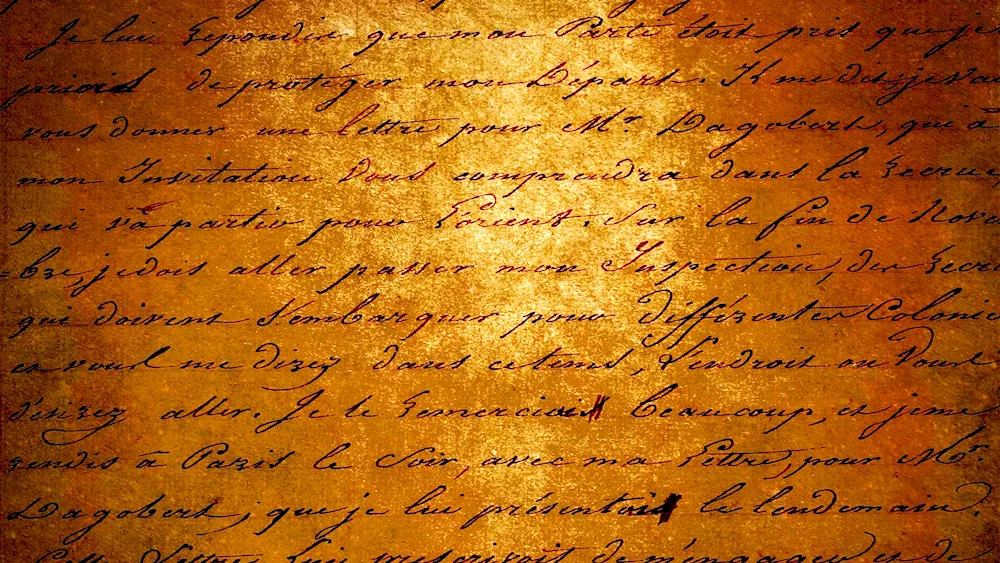 Je lui répondis que mon Parti étoit pris que je
priois de protéger mon Départ. Il me dit, je va
vous donner une lettre pour Mr. Dagobert, qui à
mon Invitation Vous comprendra dans la recrue,
qui va partir pour L'orient. Sur la fin de Nove
=bre, je dois aller passer mon Inspection, des recru
qui doivent s'embarquer pour différentes Colonie
et vous me direz dans ce tems, L'endroit ou Vous
désirez aller. Je le remerciois beaucoup, et je me
rendis à Paris le Soir, avec ma Lettre, pour Mr.
Dagobert, que je lui présentois le lendemain.
Cette Lettre Lui prescrivoit de m'engager et de